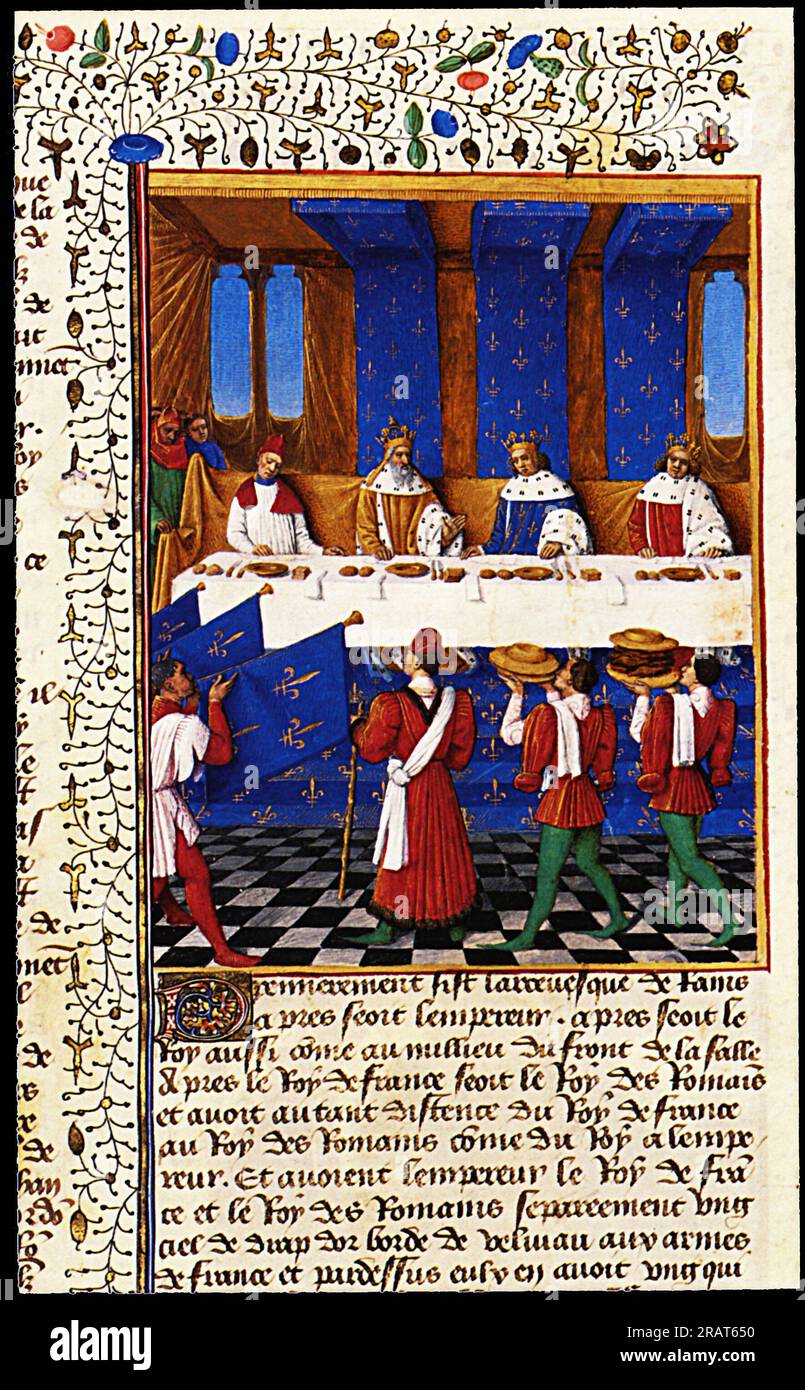 que
e la
de
de
ait
nnet
ur.
Roy
ce
il
de
de
de
han
Premierement sist larcevesque de Rains
apres seoit lempereur. apres seoit le
Roy aussi cõme au millieu du front de la salle
Apres le Roy de france seoit le Roy des Romains
et avoit autant distence du Roy de france
au Roy des Romains cõme du Roy a lempe
reur. Et avoient lempereur le Roy de frã
ce et le Roy des Romains separeement vng
ciel de drap dor borde de veluiau aux armes
de france et pardessus eulx en avoit vng qui
alamy
alamy
Image ID: 2RAT650
www.alamy.com